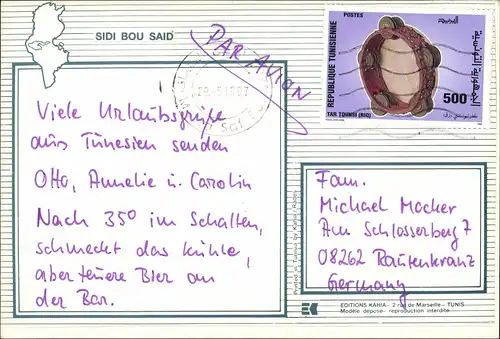 SIDI BOU SAID
PAR AVION
POSTES
REPUBLIQUE TUNISIENNE
500
TAR TOUNSI (RIQ)
Viele Urlaubsgrüße
aus Tunesien senden
Otto, Annelie u. Carolin
Nach 35° im Schatten,
schmeckt das kühle,
aber teuere Bier an
der Bar.
Fam.
Michael Mocker
Am Schlosserberg 7
08262 Rautenkranz
Germany
EDITIONS KAHIA - 2 rue de Marseille - TUNIS
Modèle déposé - reproduction interdite